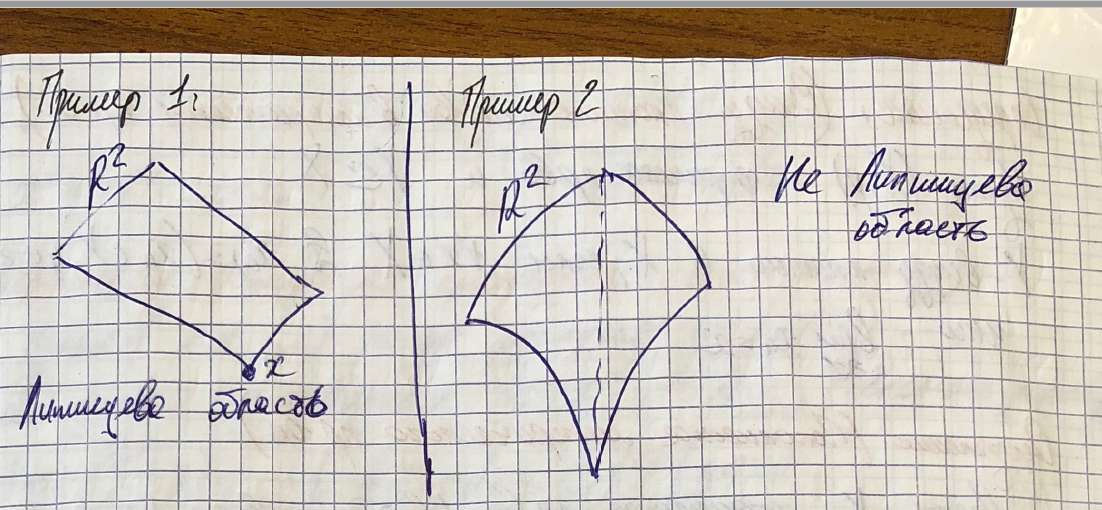 Пример 1:
R²
x
Липшицева область
Пример 2
R²
Не Липшицева
область